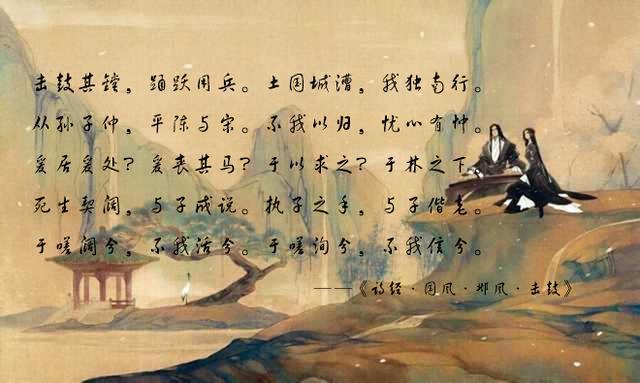 击鼓其镗，踊跃用兵。土国城漕，我独南行。
从孙子仲，平陈与宋。不我以归，忧心有忡。
爰居爰处？爰丧其马？于以求之？于林之下。
死生契阔，与子成说。执子之手，与子偕老。
于嗟阔兮，不我活兮。于嗟洵兮，不我信兮。
——《诗经·国风·邶风·击鼓》